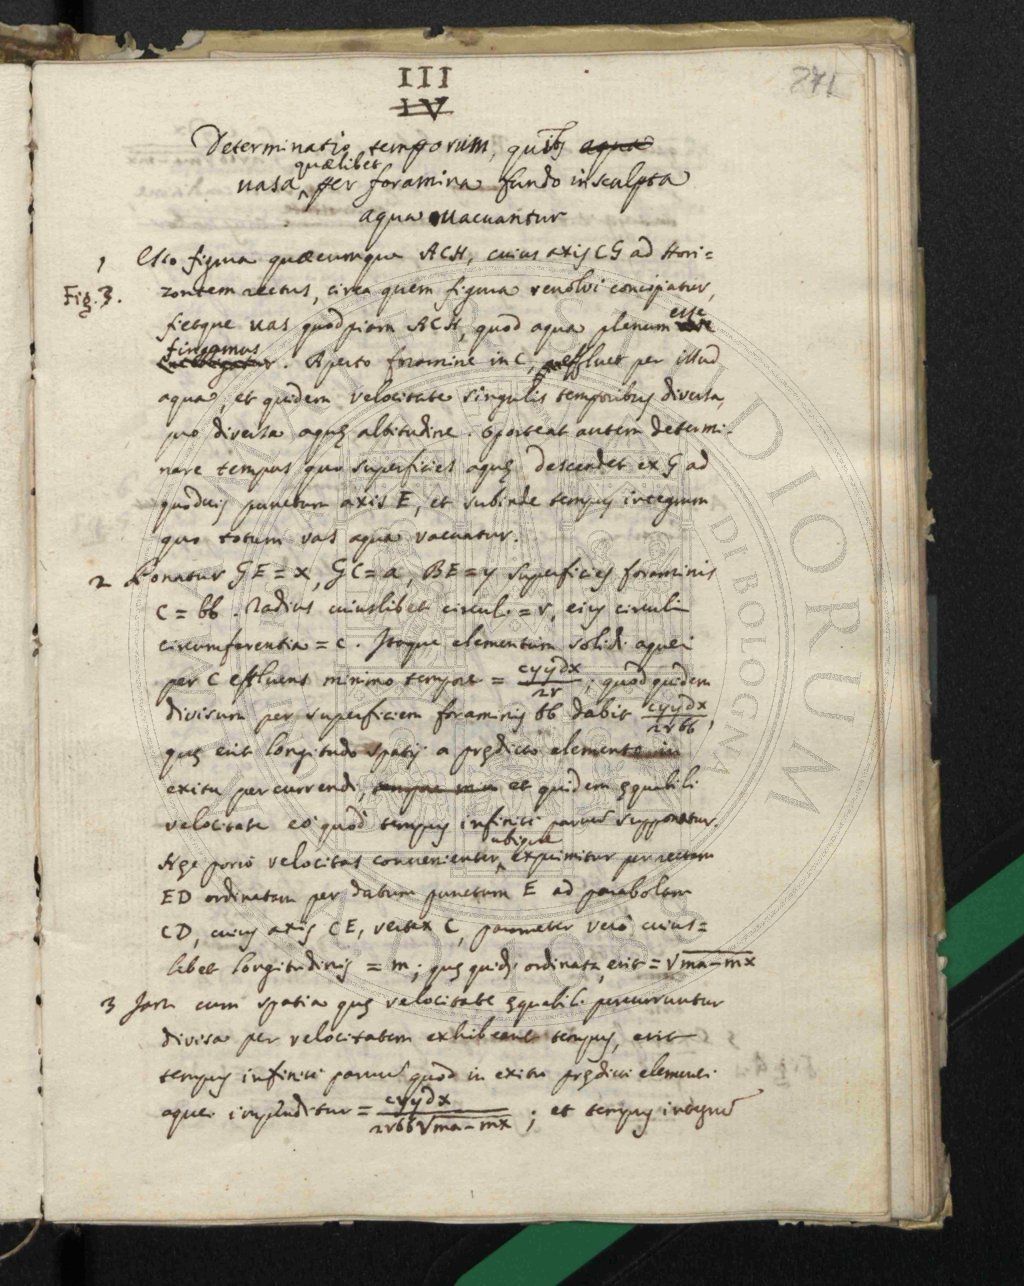 271
III
IV
Determinatio temporum, quibꝫ aqua
quælibet
vasa per foramina fundo insculpta
aqua vacuantur
1 Esto figura quæcumque ACH, cuius axis CG ad Hori=
Fig. 3. zontem rectus, circa quem figura revolvi concipiatur,
esse
fietque vas quodpiam ACH, quod aqua plenum
fingamus
. Aperto foramine in C, effluet per illud
aqua, et quidem velocitate singulis temporibus diversa,
pro diversa aquę altitudine. Oporteat autem determi-
nare tempus quo superficies aquę descendet ex G ad
quodvis punctum axis E, et subinde tempus integrum
quo totum vas aqua vacuatur.
2 Ponatur GE = x, GC = a, BE = y superficies foraminis
C = bb. Radius cuiuslibet circuli = r, eius circuli
circumferentia = c. Itaque elementum solidi aquei
per C effluens minimo tempore = cyydx/2r; quod quidem
divisum per superficiem foraminis bb dabit cyydx/2rbb,
quę erit longitudo spatij a prędicto elemento in
exitu percurrendi, et quidem ęquabili
velocitate eo quod tempus infinite parvum supponatur.
ubique
Atque porro velocitas convenienter exprimitur per rectam
ED ordinatam per datum punctum E ad parabolam
CD, cuius axis CE, vertex C, parameter vero cuius=
libet longitudinis = m; quę quidem ordinata erit = √ma-mx
3 Jam cum spatia quę velocitate ęquabili percurruntur
divisa per velocitatem exhibeant tempus, erit
tempus infinite parvum quod in exitu prędicti elementi
aquei impenditur = cyydx/2rbb√ma-mx; et tempus integrum